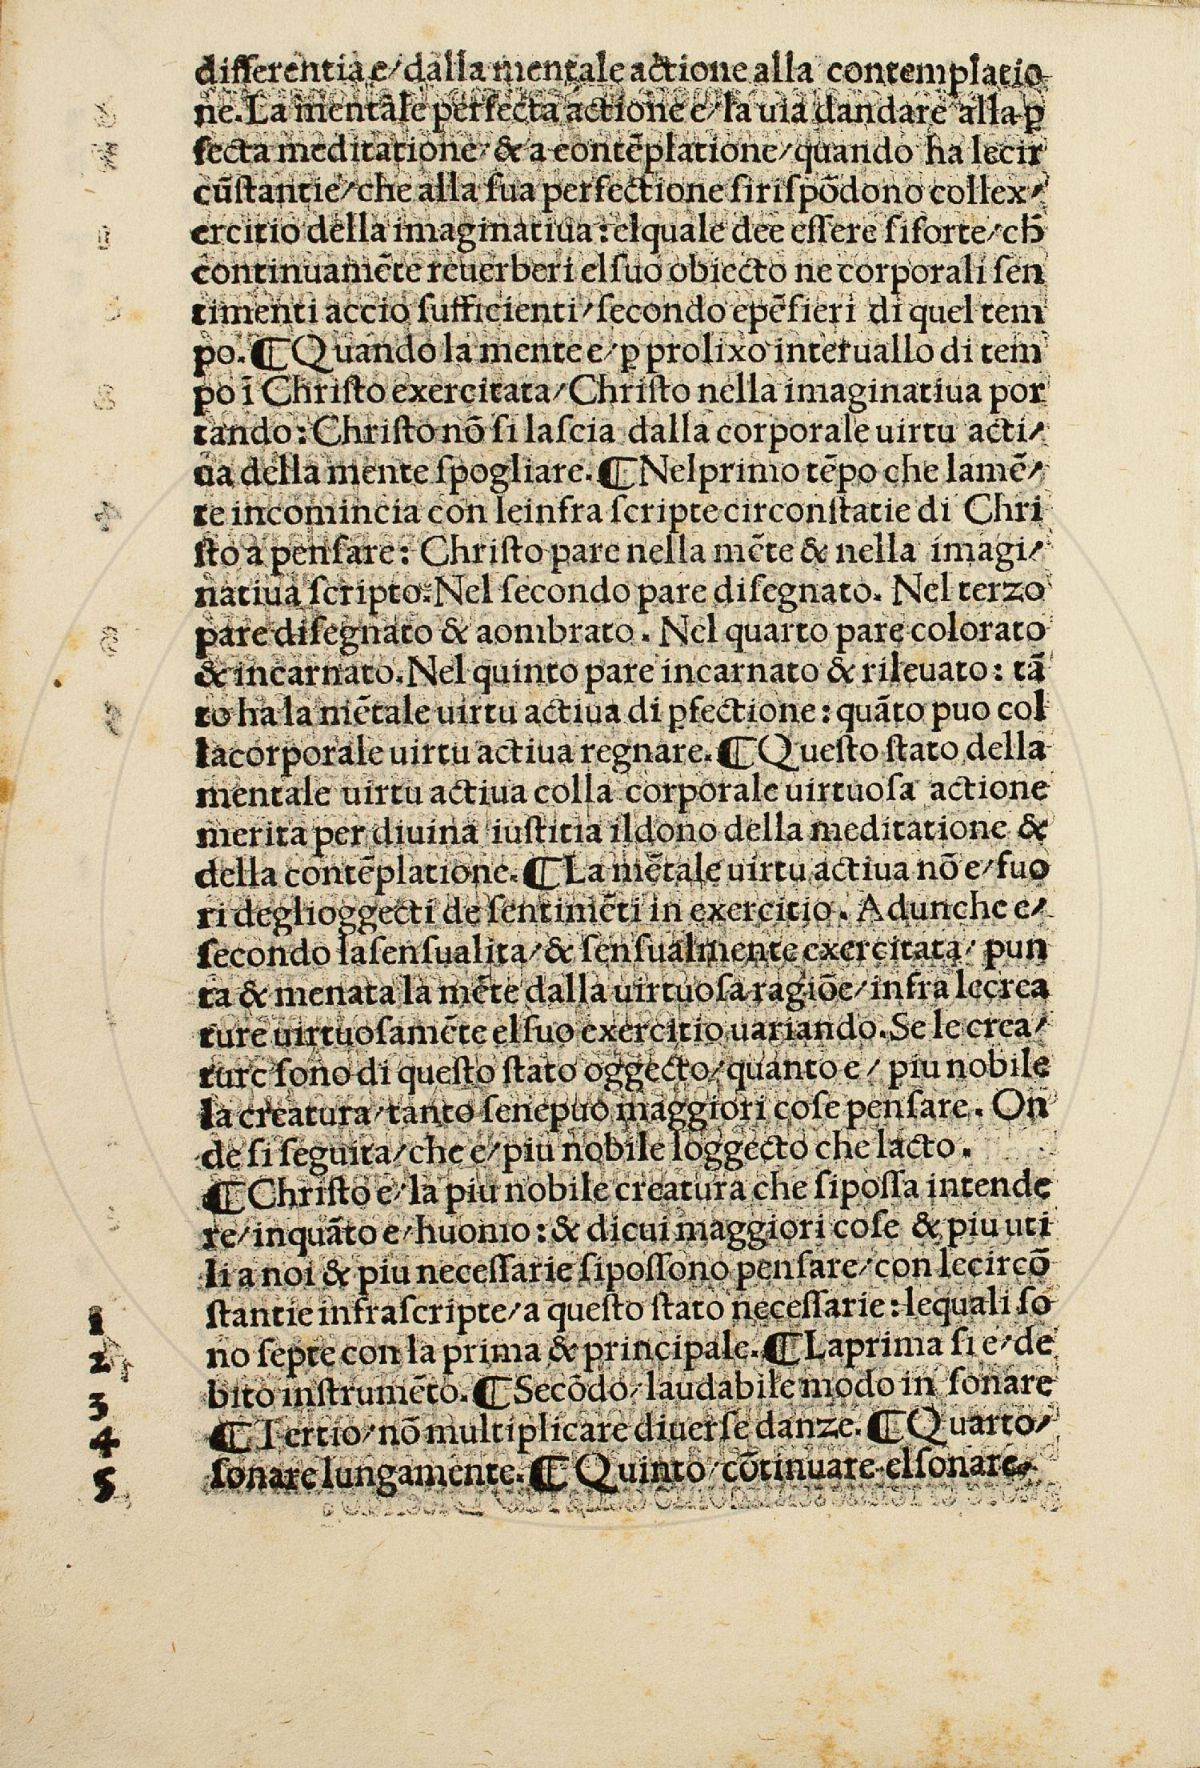 differentia e/dalla mentale actione alla contemplatio
ne.La mentale perfecta actione e/la uia dandare alla ꝑ
fecta meditatione/& a contẽplatione/quando ha lecir
cũſtantie/che alla ſua perfectione ſiriſpõdono collex/
ercitio della imaginatiua:elquale dee eſſere ſiforte/cħ
continuamẽte reuerberi elſuo obiecto ne corporali ſen
timenti accio ſufficienti/ſecondo epẽſieri di quel tem
po.¶Quando la mente e/ꝑ prolixo interuallo di tem
po ĩ Chriſto exercitata/Chriſto nella imaginatiua por
tando:Chriſto nõ ſi laſcia dalla corporale uirtu acti/
ua della mente ſpogliare.¶Nelprimo tẽpo che lamẽ/
te incomincia con leinfra ſcripte circonſtatie di Chri
ſto a penſare: Chriſto pare nella mẽte & nella imagi/
natiua ſcripto.Nel ſecondo pare diſegnato. Nel terzo
pare diſegnato & aombrato. Nel quarto pare colorato
& incarnato.Nel quinto pare incarnato & rileuato: tã
to ha la mẽtale uirtu actiua di ꝑfectione:quãto puo col
lacorporale uirtu actiua regnare.¶Queſto ſtato della
mentale uirtu actiua colla corporale uirtuoſa actione
merita per diuina iuſtitia ildono della meditatione &
della contẽplatione.¶La mẽtale uirtu actiua nõ e/fuo
ri deglioggecti de ſentimẽti in exercitio. Adunche e/
ſecondo laſenſualita/& ſenſualmente exercitata/ pun
ta & menata la mẽte dalla uirtuoſa ragiõe/infra lecrea
ture uirtuoſamẽte elſuo exercitio uariando.Se le crea/
ture ſono di queſto ſtato oggecto/quanto e/ piu nobile
la creatura/tanto ſenepuo maggiori coſe penſare. On
de ſi ſeguita/che e/piu nobile loggecto che lacto.
¶Chriſto e/la piu nobile creatura che ſipoſſa intende
re/inquãto e/huomo:& dicui maggiori coſe & piu uti
li a noi & piu neceſſarie ſipoſſono penſare/con lecircõ
ſtantie infraſcripte/a queſto ſtato neceſſarie:lequali ſo
1
no ſepte con la prima & principale.¶Laprima ſi e/de
2
bito inſtrumẽto.¶Secõdo/laudabile modo in ſonare
3
¶Tertio/nõ multiplicare diuerſe danze.¶Quarto/
4
ſonare lungamente.¶Quinto/cõtinuare elſonare.
5